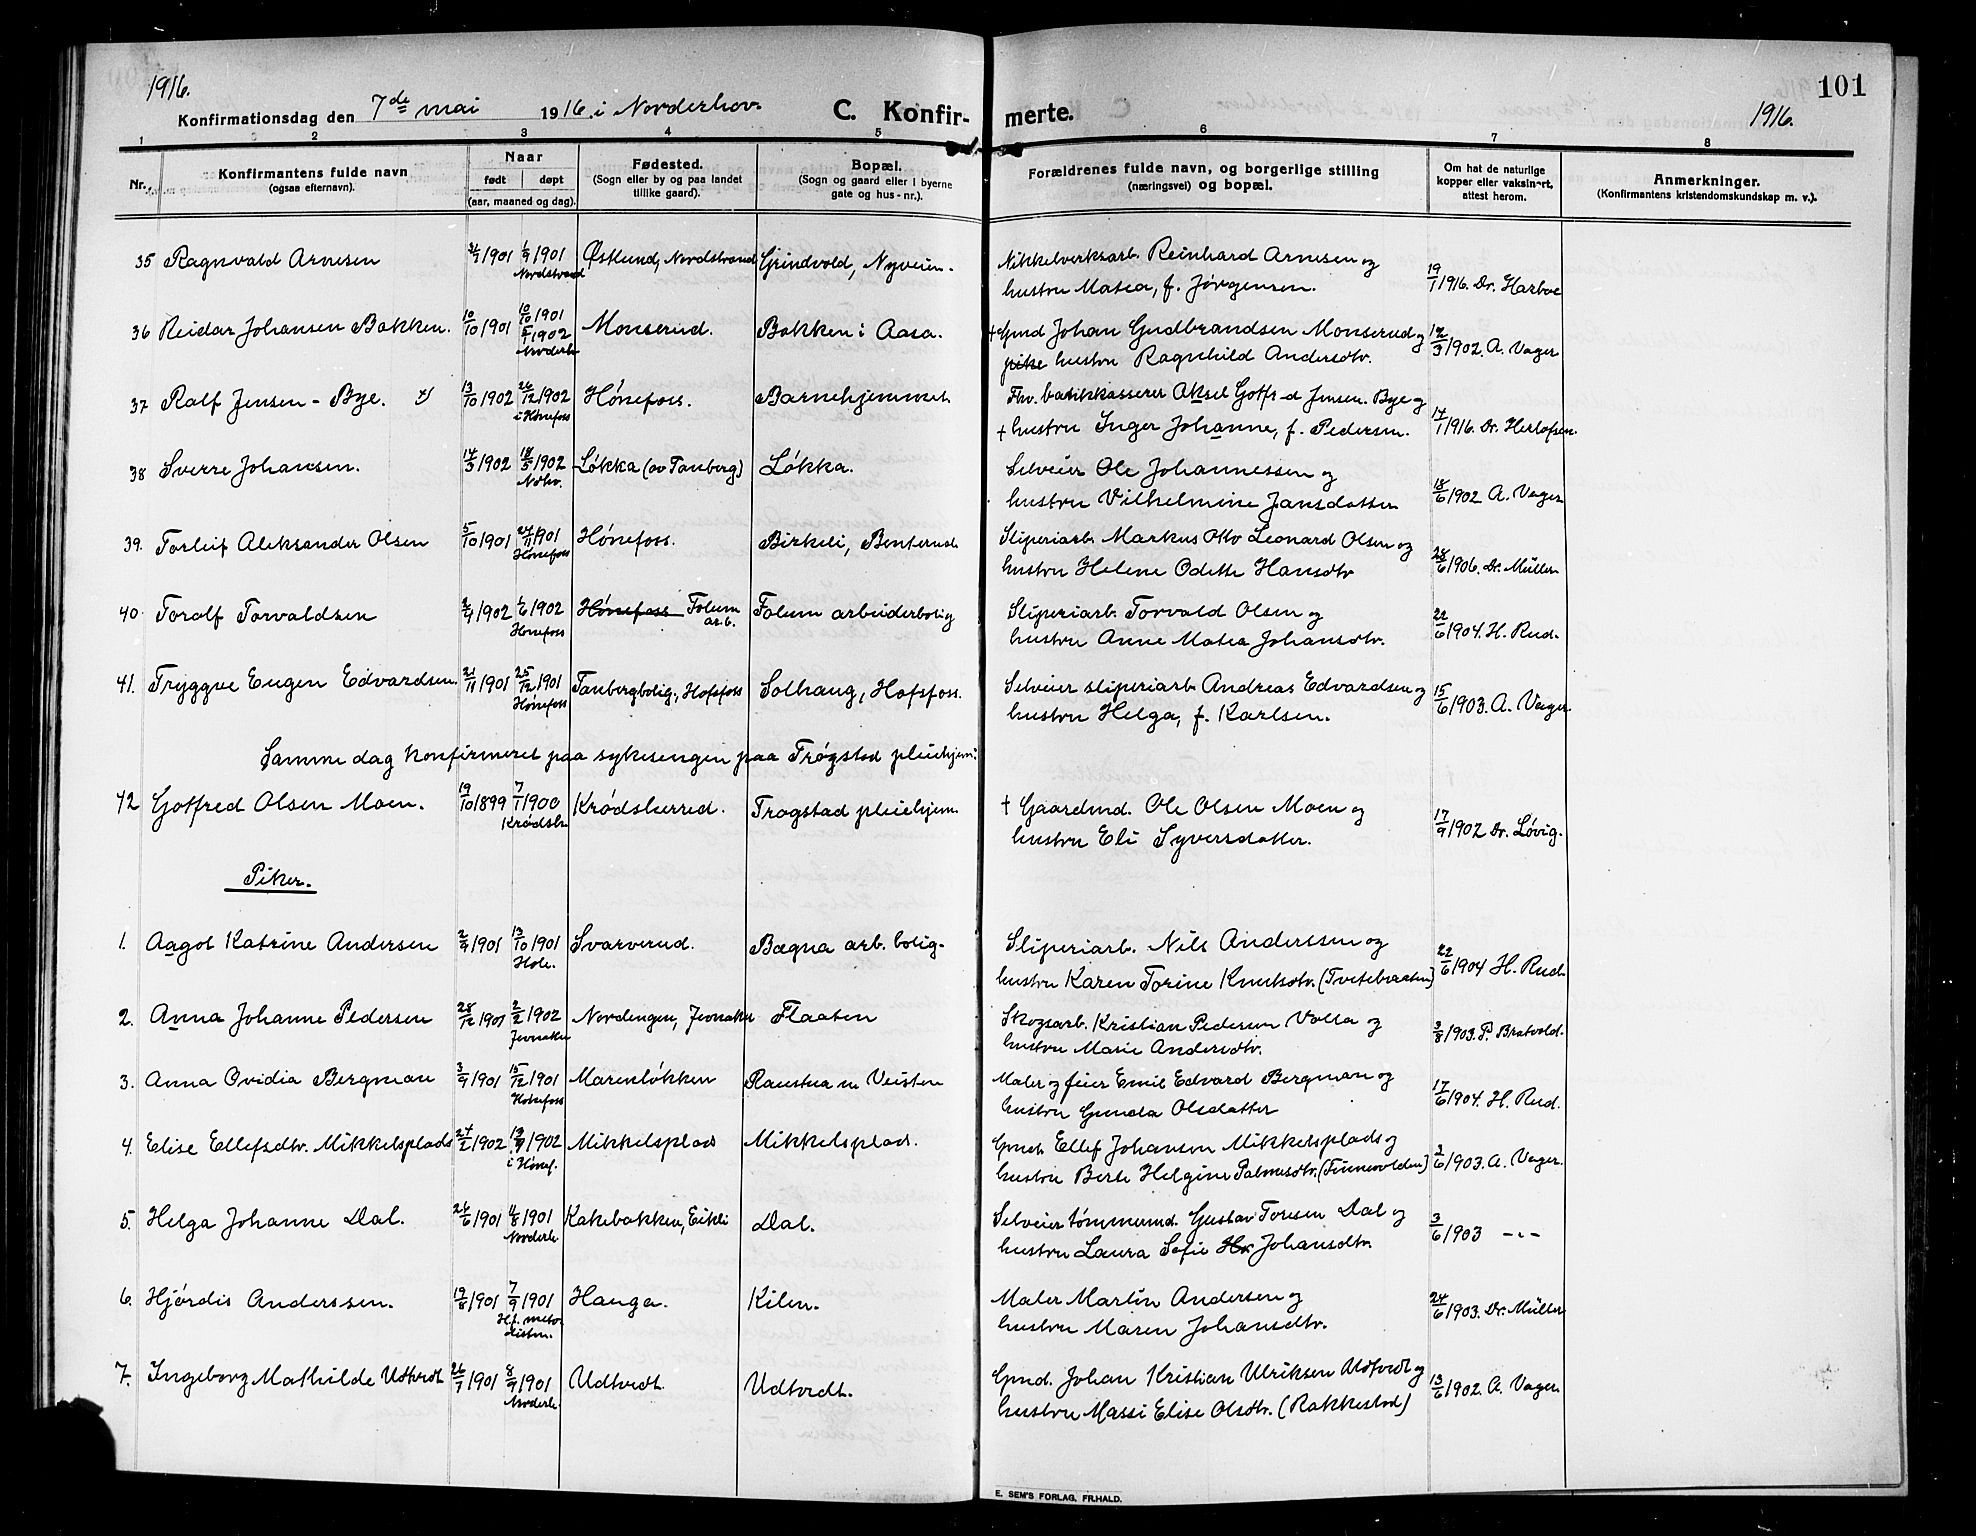 1916.
101
Konfirmationsdag den 7de mai 1916. i Norderhov.
C. Konfir- merte.
1916.
1 2 3 4 5 6 7 8
Nr.
Konfirmantens fulde navn
(ogsaa efternavn).
Naar
født døpt
(aar, maaned og dag).
Fødested.
(Sogn eller by og paa landet
tillike gaard).
Bopæl.
(Sogn og gaard eller i byerne
gate og hus-nr.).
Forældrenes fulde navn, og borgerlige stilling
(næringsvei) og bopæl.
Om hat de naturlige
kopper eller vaksinert,
attest herom.
Anmerkninger.
(Konfirmantens kristendomskundskap m. v.).
35 Ragnvald Arnesen 1901 1901 Østlund, Nordstrand Grindvold, Nyveien. Nikkelverksarb. Reinhard Arnesen og
Nordstrand hustru Matea, f. Jørgensen. 19/1 1916. Dr. Harboe
36 Reidar Johansen Bakken. 10/10 1901 10/10 1901 Monserud. Bakken i Aasa. † Gmd Johan Gudbrandsen Monserud og
1902 Norderh. pike hustru Ragnhild Andersdtr. 12/3 1902. A. Vager
37 Ralf Jensen-Bye. 13/10 1902 26/12 1902 Hønefoss. Barnehjemmet Fhv. bankkasserer Aksel Gotfred Jensen-Bye og
i Hønefoss † hustru Inger Johanne, f. Pedersen. 14/1 1916. Dr. Herlofsen.
38 Sverre Johansen. 14/3 1902 18/5 1902 Løkka (av Tanberg) Løkka. Selveier Ole Johannessen og
Ndhv. hustru Vilhelmine Jansdatter 18/6 1902 A. Vager
39. Torleif Aleksander Olsen 5/10 1901 24/11 1901 Hønefoss. Birkeli, Benterud. Sliperiarb. Markus Otto Leonard Olsen og
Hønefoss hustru Helene Odette Hansdtr 28/6 1906. Dr. Müller
40. Torolf Torvaldsen 1902 1/6 1902 Hønefoss Folum Folum arbeiderbolig Sliperiarb. Torvald Olsen og
Hønefoss ar.b. hustru Anne Matea Johansdtr. 22/6 1904. H. Rud.
41. Tryggve Eugen Edvardsen. 21/11 1901 25/12 1901 Tanbergbolig., Hofsfoss Solhaug, Hofsfoss. Selveier sliperiarb Andreas Edvardsen og
Hønefoss hustru Helga, f. Karlsen. 15/6 1903. A. Vager.
Samme dag konfirmeret paa sykesengen paa Trøgstad pleiehjem:
42 Gotfred Olsen Moen. 19/10 1899 7/1 1900 Krødsherred. Trøgstad pleiehjem. † Gaardmd. Ole Olsen Moen og
Krødsh. hustru Eli Syversdatter. 17/9 1902 Dr. Løvig.
Piker.
1. Aagot Katrine Andersen 2/9 1901 13/10 1901 Svarverud. Bægna arb. bolig. Sliperiarb. Nils Anderssen og
Hole. hustru Karen Torine Knutsdtr. (Tvetebraaten) 22/6 1904 H. Rud.
2. Anna Johanne Pedersen 28/12 1901 2/2 1902 Nordengen, Jevnaker Flaaten Skogsarb. Kristian Pedersen Volla og
Jevnaker hustru Marie Andersdtr. 3/8 1903. P. Bratvold.
3. Anna Ovidia Bergman 3/9 1901 15/12 1901 Marenløkken Raustua Maler og feier Emil Edvard Bergman og
Hønefoss hustru Gunda Olsdatter 17/6 1904. H. Rud.
4. Elise Ellefsdtr. Mikkelsplads 24/2 1902. 1902 Mikkelsplads Mikkelsplads. Gmd. Ellef Johansen Mikkelsplads og
i Hønef. hustru Berte Helgine Palmesdtr. (Finnevolden) 3/6 1903. A. Vager.
5. Helga Johanne Dal. 26/6 1901 4/8 1901 Kakebakken, Eikli Dal. Selveier tømmermd. Gustav Toresen Dal og
Norderh. hustru Laura Sofie Johansdtr. 3/6 1903 -"-
6. Hjørdis Anderssen. 19/8 1901 7/9 1901 Hauga. Kilen. Maler Martin Andersen og
Hf. metodistm. hustru Maren Johansdtr. 24/6 1903. Dr. Müller
7. Ingeborg Mathilde Udtvedt 26/7 1901 8/9 1901 Udtvedt. Udtvedt. Gmd. Johan Kristian Ulriksen Udtvedt og
Norderh. hustru Massi Elise Olsdtr. (Rakkestad) 13/6 1902. A. Vager.
E. SEM'S FORLAG, FR.HALD.